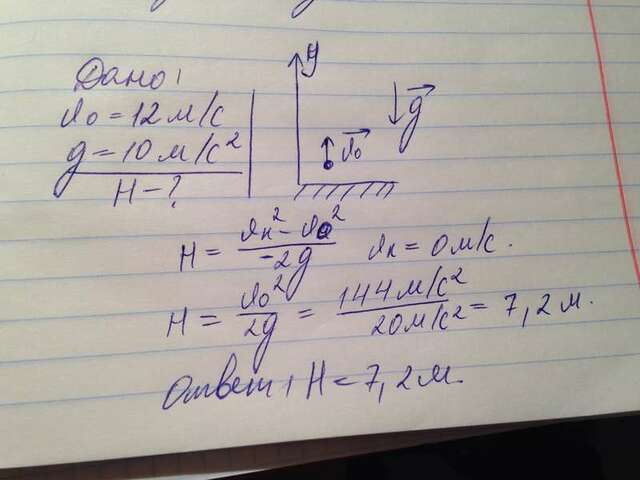 Дано:
v₀ = 12 м/с
g = 10 м/с²
H - ?
y
v₀
g
H = vк² - v₀² / -2g vк = 0 м/с.
H = v₀² / 2g = 144 м/с² / 20 м/с² = 7,2 м.
Ответ: H = 7,2 м.